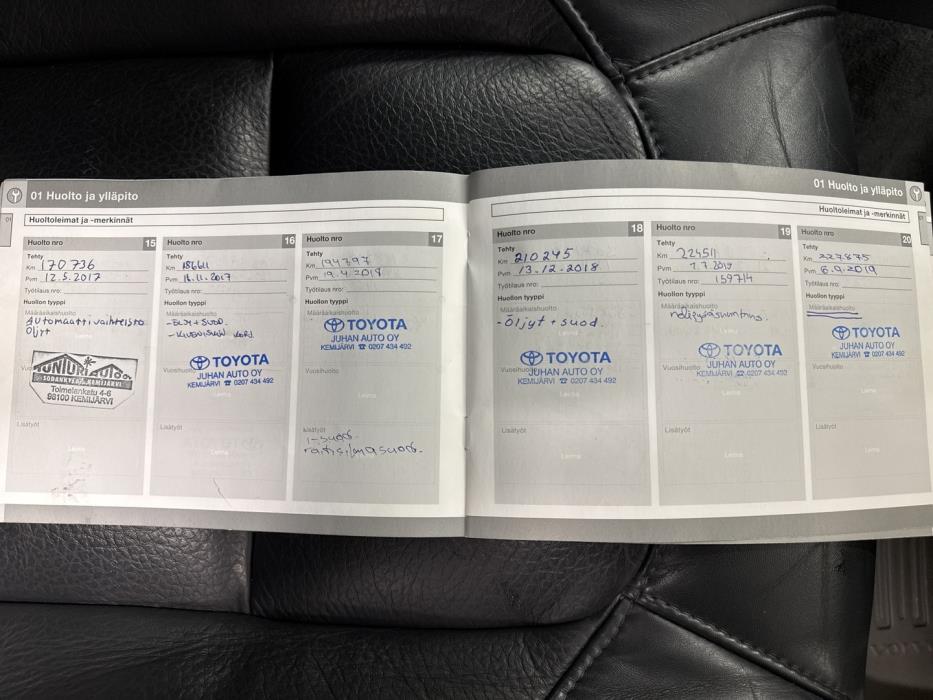 01 Huolto ja ylläpito
01
Huoltoleimat ja -merkinnät
Huolto nro 15
Tehty
Km 170736
Pvm 12.5.2017
Työtilaus nro:
Huollon tyyppi
Määräaikaishuolto
Automaattivaihteisto
Öljyt
Vuosihuolto
TUNTURI AUTO OY
SODANKYLÄ KEMIJÄRVI
Toimelankatu 4-6
98100 KEMIJÄRVI
Leima
Lisätyöt
Leima
Huolto nro 16
Tehty
Km 186611
Pvm 16.11.2017
Työtilaus nro:
Huollon tyyppi
Määräaikaishuolto
-ÖLJY + SUOD.
TOYOTA
JUHAN AUTO OY
KEMIJÄRVI ☎ 0207 434 492
Vuosihuolto
Leima
Lisätyöt
Leima
Huolto nro 17
Tehty
Km 194797
Pvm 19.4.2018
Työtilaus nro:
Huollon tyyppi
Määräaikaishuolto
TOYOTA
JUHAN AUTO OY
KEMIJÄRVI ☎ 0207 434 492
Vuosihuolto
Leima
Lisätyöt
raitisilmasuod.
01 Huolto ja ylläpito
Huoltoleimat ja -merkinnät
01
Huolto nro 18
Tehty
Km 210245
Pvm 13.12.2018
Työtilaus nro:
Huollon tyyppi
Määräaikaishuolto
-Öljyt + suod.
TOYOTA
Vuosihuolto
JUHAN AUTO OY
KEMIJÄRVI ☎ 0207 434 492
Leima
Lisätyöt
Leima
Huolto nro 19
Tehty
Km 224511
Pvm 1.7.2019
Työtilaus nro: 159714
Huollon tyyppi
Määräaikaishuolto
TOYOTA
Vuosihuolto
JUHAN AUTO OY
KEMIJÄRVI ☎ 0207 434 492
Leima
Lisätyöt
Leima
Huolto nro 20
Tehty
Km 227875
Pvm 6.9.2019
Työtilaus nro:
Huollon tyyppi
Määräaikaishuolto
TOYOTA
JUHAN AUTO OY
KEMIJÄRVI ☎ 0207 434 492
Vuosihuolto
Leima
Lisätyöt
Leima